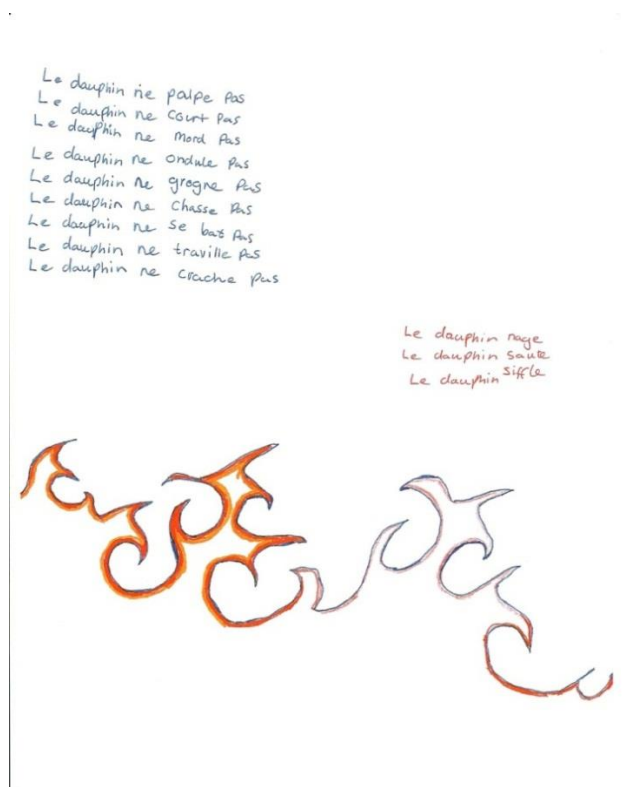 Le dauphin ne palpe pas
Le dauphin ne court pas
Le dauphin ne mord pas
Le dauphin ne ondule pas
Le dauphin ne grogne pas
Le dauphin ne chasse pas
Le dauphin ne se bat pas
Le dauphin ne traville pas
Le dauphin ne crache pas
Le dauphin nage
Le dauphin saute
Le dauphin siffle